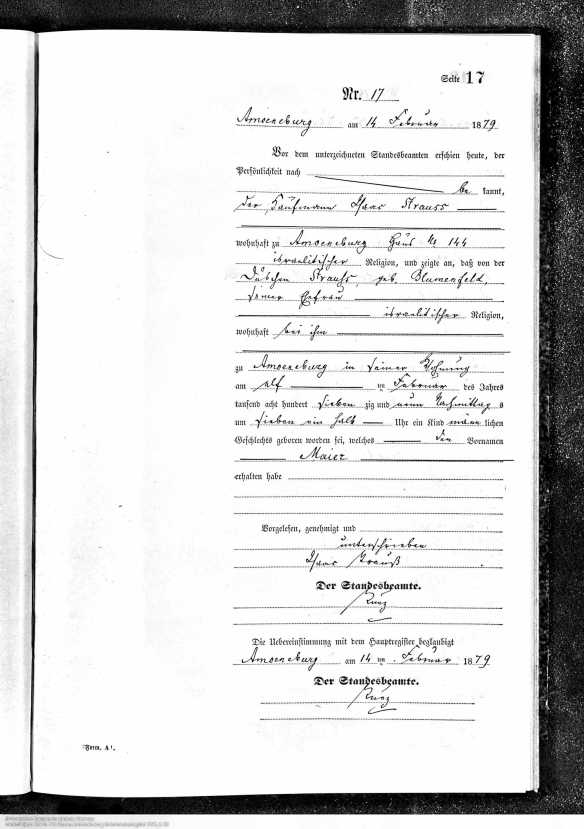 Seite 17
Nr. 17
Amoeneburg am 14 Februar 1879
Vor dem unterzeichneten Standesbeamten erschien heute, der
Persönlichkeit nach
be kannt,
der Kaufmann Isaac Strauss
wohnhaft zu Amoeneburg Haus No 144
israelitischer Religion, und zeigte an, daß von der
Dübchen Strauss, geb. Blumenfeld,
seiner Ehefrau
israelitischer Religion,
wohnhaft bei ihm
zu Amoeneburg in seiner Wohnung
am elf ten Februar des Jahres
tausend acht hundert sieben zig und neun Nachmittag s
um sieben ein halb Uhr ein Kind männ lichen
Geschlechts geboren worden sei, welches den Vornamen
Maier
erhalten habe
Vorgelesen, genehmigt und
unterschrieben
Isaac Strauß
Der Standesbeamte.
Kunz
Die Uebereinstimmung mit dem Hauptregister beglaubigt
Amoeneburg am 14 ten Februar 1879
Der Standesbeamte.
Kunz
Form. A¹.